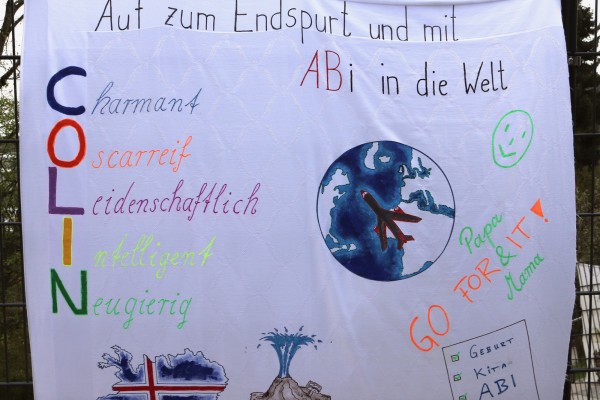 Auf zum Endspurt und mit
ABi in die Welt
Charmant
Oscarreif
Leidenschaftlich
Intelligent
Neugierig
Papa
&
Mama
GO FOR IT!
GEBURT
KITA
ABI